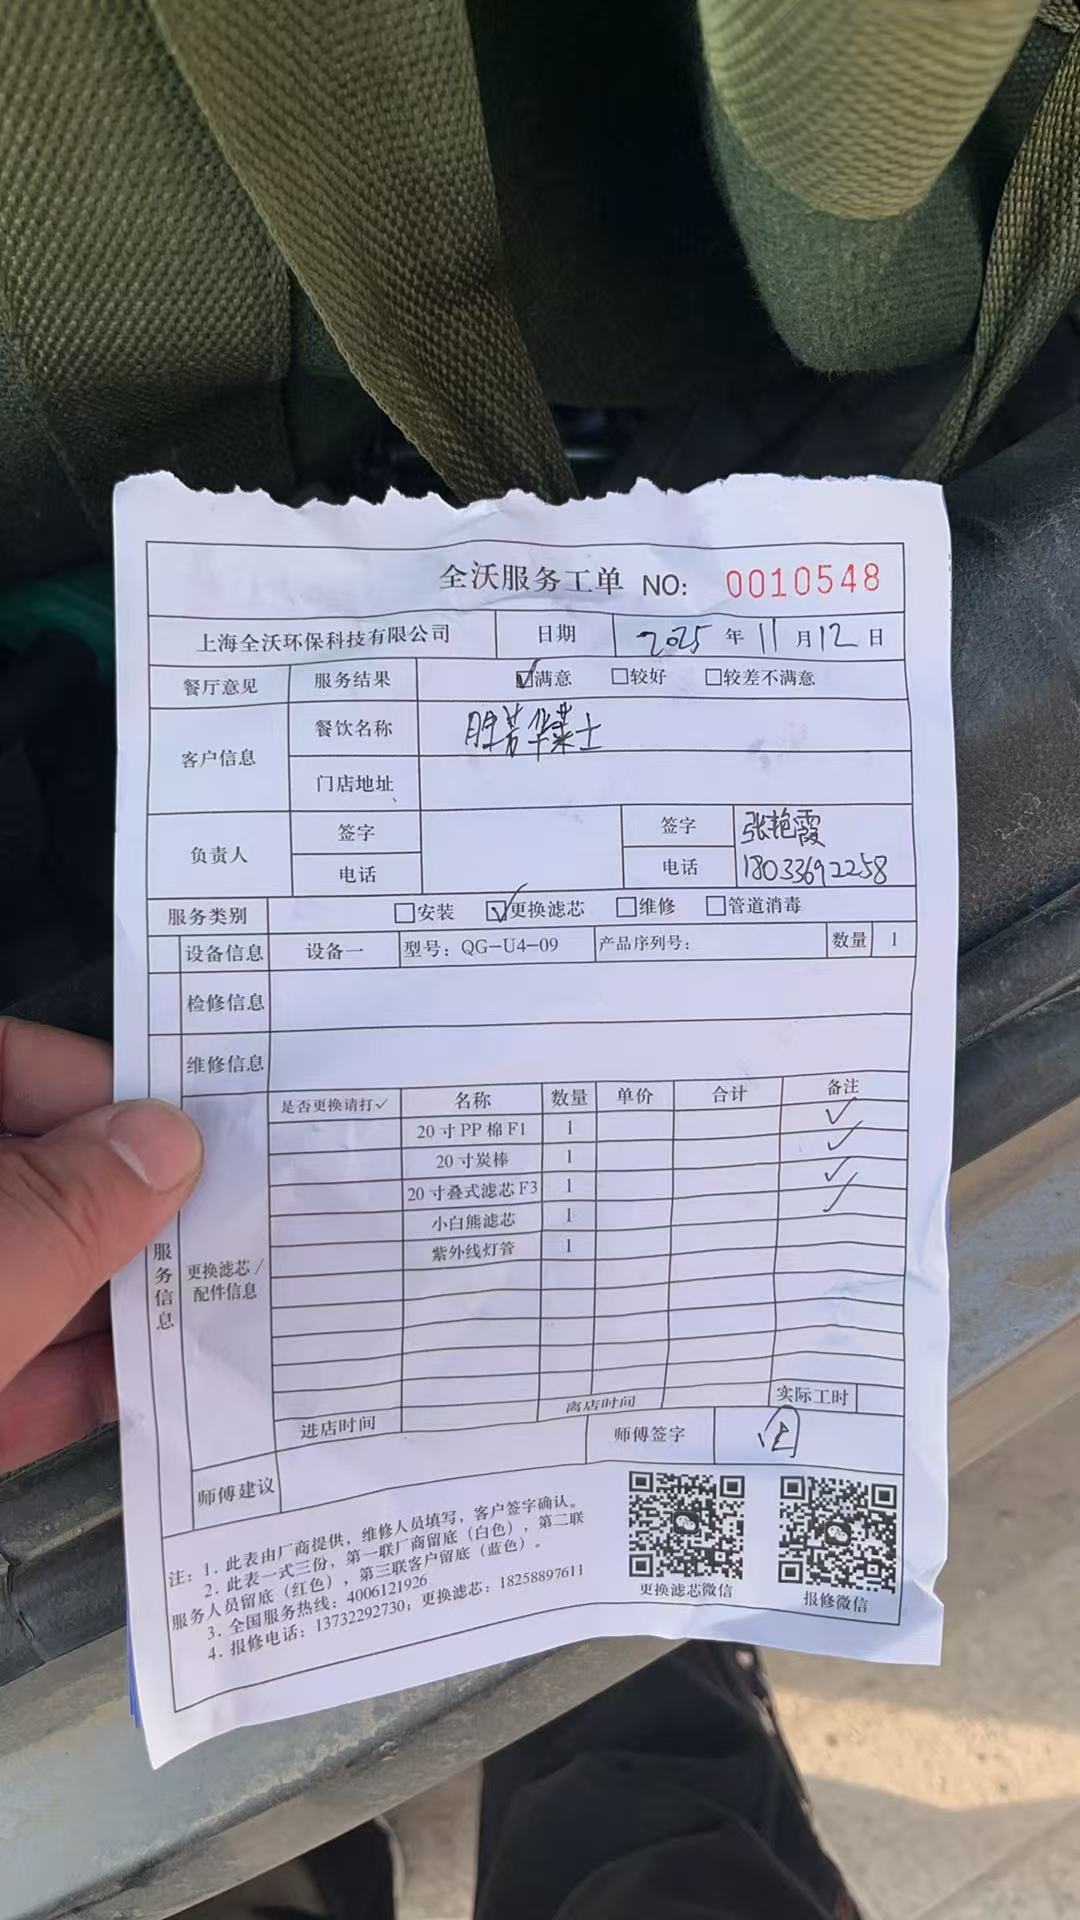 全沃服务工单 NO: 0010548
上海全沃环保科技有限公司 日期 2025 年 11 月 12 日
餐厅意见 服务结果 ☑满意 □较好 □较差不满意
客户信息 餐饮名称 胜芳华莱士
门店地址
负责人 签字 签字 张艳霞
电话 电话 18033692258
服务类别 □安装 ☑更换滤芯 □维修 □管道消毒
服务信息
设备信息 设备一 型号：QG-U4-09 产品序列号： 数量 1
检修信息
维修信息
更换滤芯/配件信息
是否更换请打✓ 名称 数量 单价 合计 备注
20寸PP棉F1 1 ✓
20寸炭棒 1 ✓
20寸叠式滤芯F3 1 ✓
小白熊滤芯 1 ✓
紫外线灯管 1
实际工时
进店时间 离店时间
师傅签字
师傅建议
注：1. 此表由厂商提供，维修人员填写，客户签字确认。
2. 此表一式三份，第一联厂商留底（白色），第二联
服务人员留底（红色），第三联客户留底（蓝色）。
3. 全国服务热线：4006121926
4. 报修电话：13732292730；更换滤芯：18258897611
更换滤芯微信 报修微信